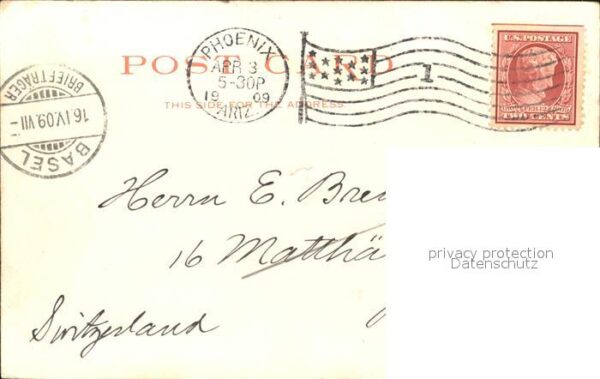 POST CARD
THIS SIDE FOR THE ADDRESS
PHOENIX
APR 3
5-30P
1909
ARIZ.
1
U.S. POSTAGE
TWO CENTS
BRIEFTRÄGER
16.IV.09.VII-
BASEL
Herrn E. Bre
16 Matthä
Switzerland
privacy protection
Datenschutz